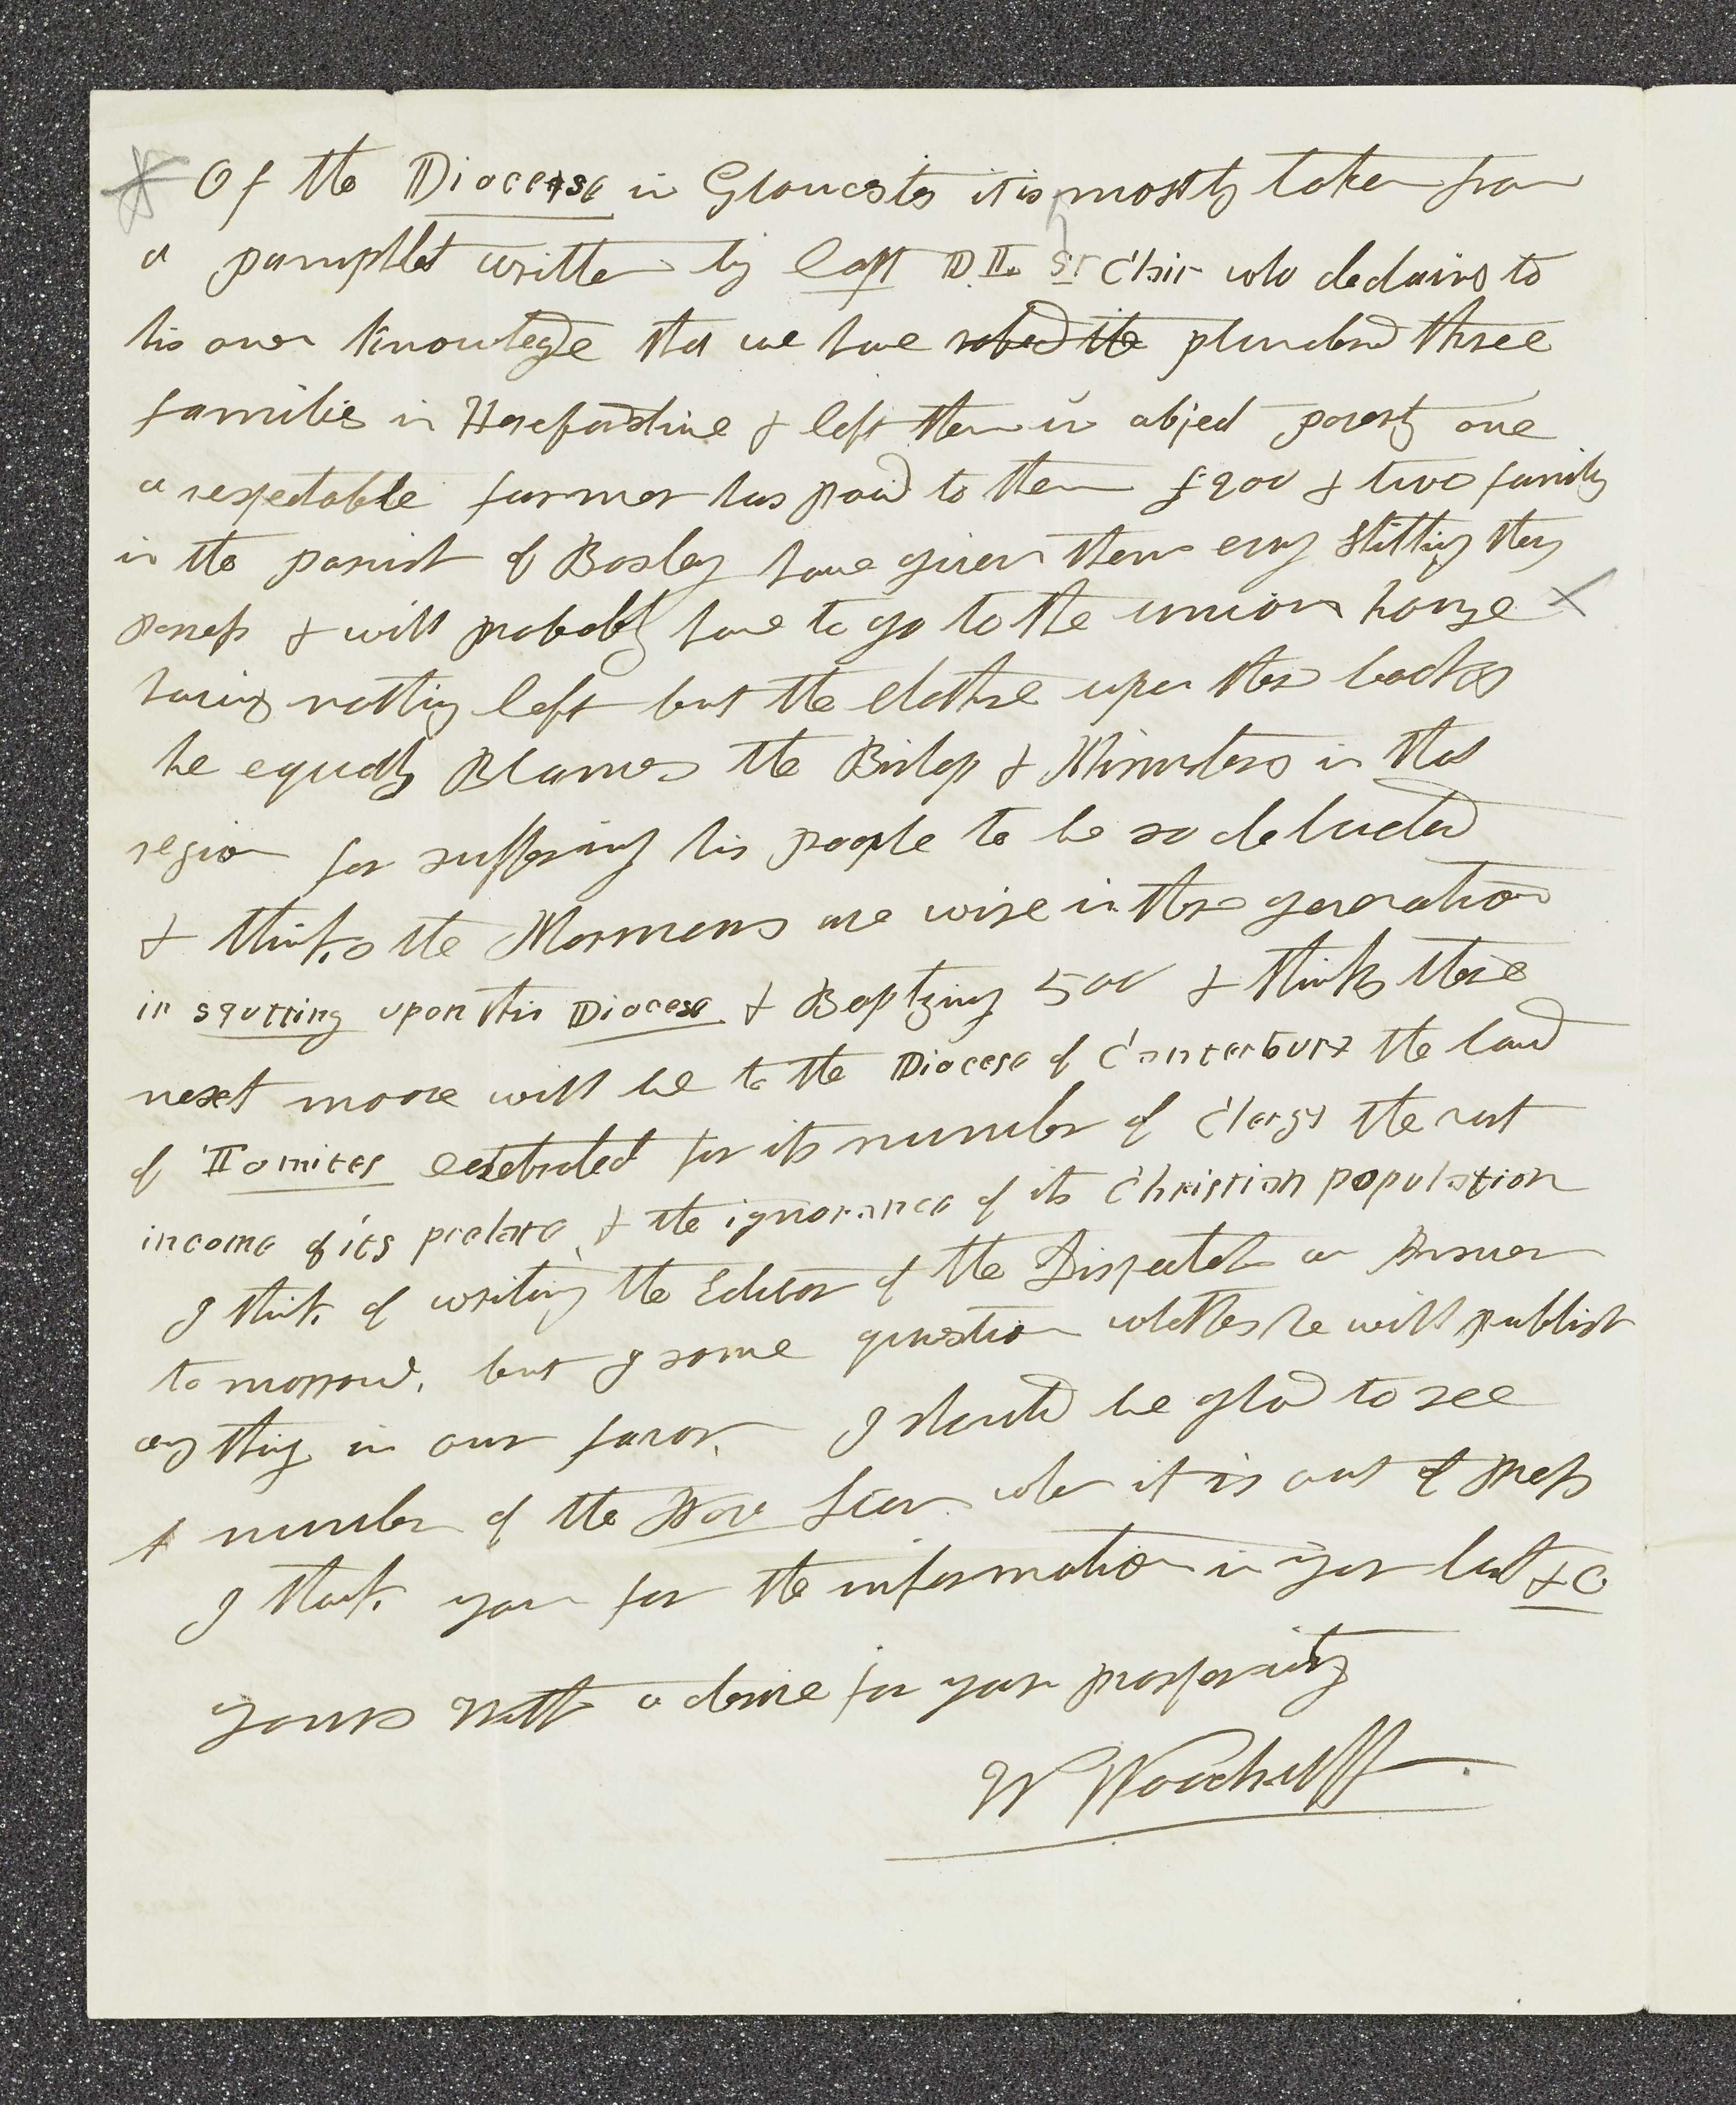 Of the Diocese in Gloucester it is mostly taken from
a pamphlet written by Capt D.L. St Clair who declairs to
his own knowledge that we have robed the plundered three
families in Herefordshire & left them in abject poverty one
a respectable farmer has paid to them £900 & two family
in the parish of Bosley have given them evry shilling they
possess & will probably have to go to the union house
having nothing left but the clothse upon their backs
he equally Blames the Bishop & Ministers in that
region for suffering his people to be so deluded
& thinks the Mormons are wise in there generation
in squtting upon this Diocese & Baptizing 500 & thinks there
next moove will be to the Diocese of Canterbury the land
of celebrated for its number of Clergy the vast
income of its prelate, & the ignorance of its Christian population
I think of writing the Editor of the Dispatch an Answer
to morrow, but I some question whether he will publish
any thing in our favor. I should be glad to see
A number of the Star when it is out of press
I thank you for the information in your last &c
yours With a desire for your prosperity
W Woodruff